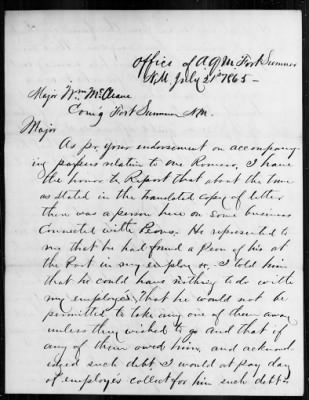 Office of A.Q.M. Fort Sumner
N.M. July 21st 1865 -
Major Wm McCleave
Com'g Fort Sumner N.M.
Major
As pr your endorsement on accompany
ing papers relative to one Romero, I have
the honor to Report that about the time
as stated in the translated copy of letter
there was a person here on some business
Connected with Peons. He represented to
me that he had found a Peon of his at
the Post in my employ or, I told him
that he could have nothing to do with
my employes, that he would not be
permitted to take any one of them away
unless they wished to go and that if
any of them owed him, and acknowl
edged such debt, I would at pay day
of employes collect for him such debt -